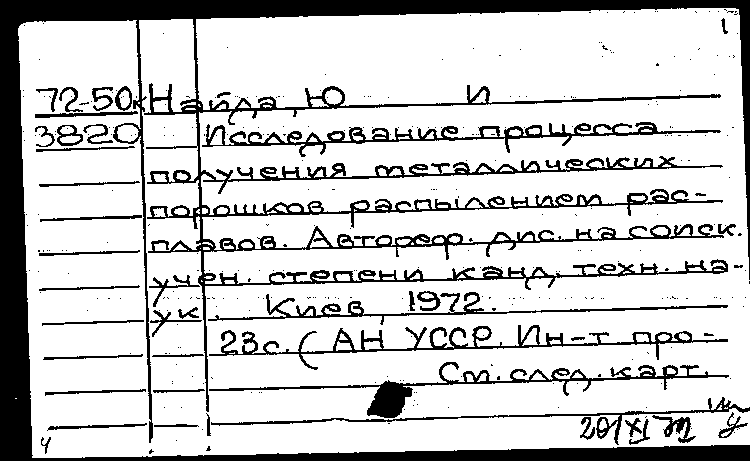 1
72-50к Найда, Ю И
3820 Исследование процесса
получения металлических
порошков распылением рас-
плавов. Автореф. дис. на соиск.
учен. степени канд. техн. на-
ук. Киев, 1972.
23с. (АН УССР. Ин-т про-
См. след. карт.
20/XI
4